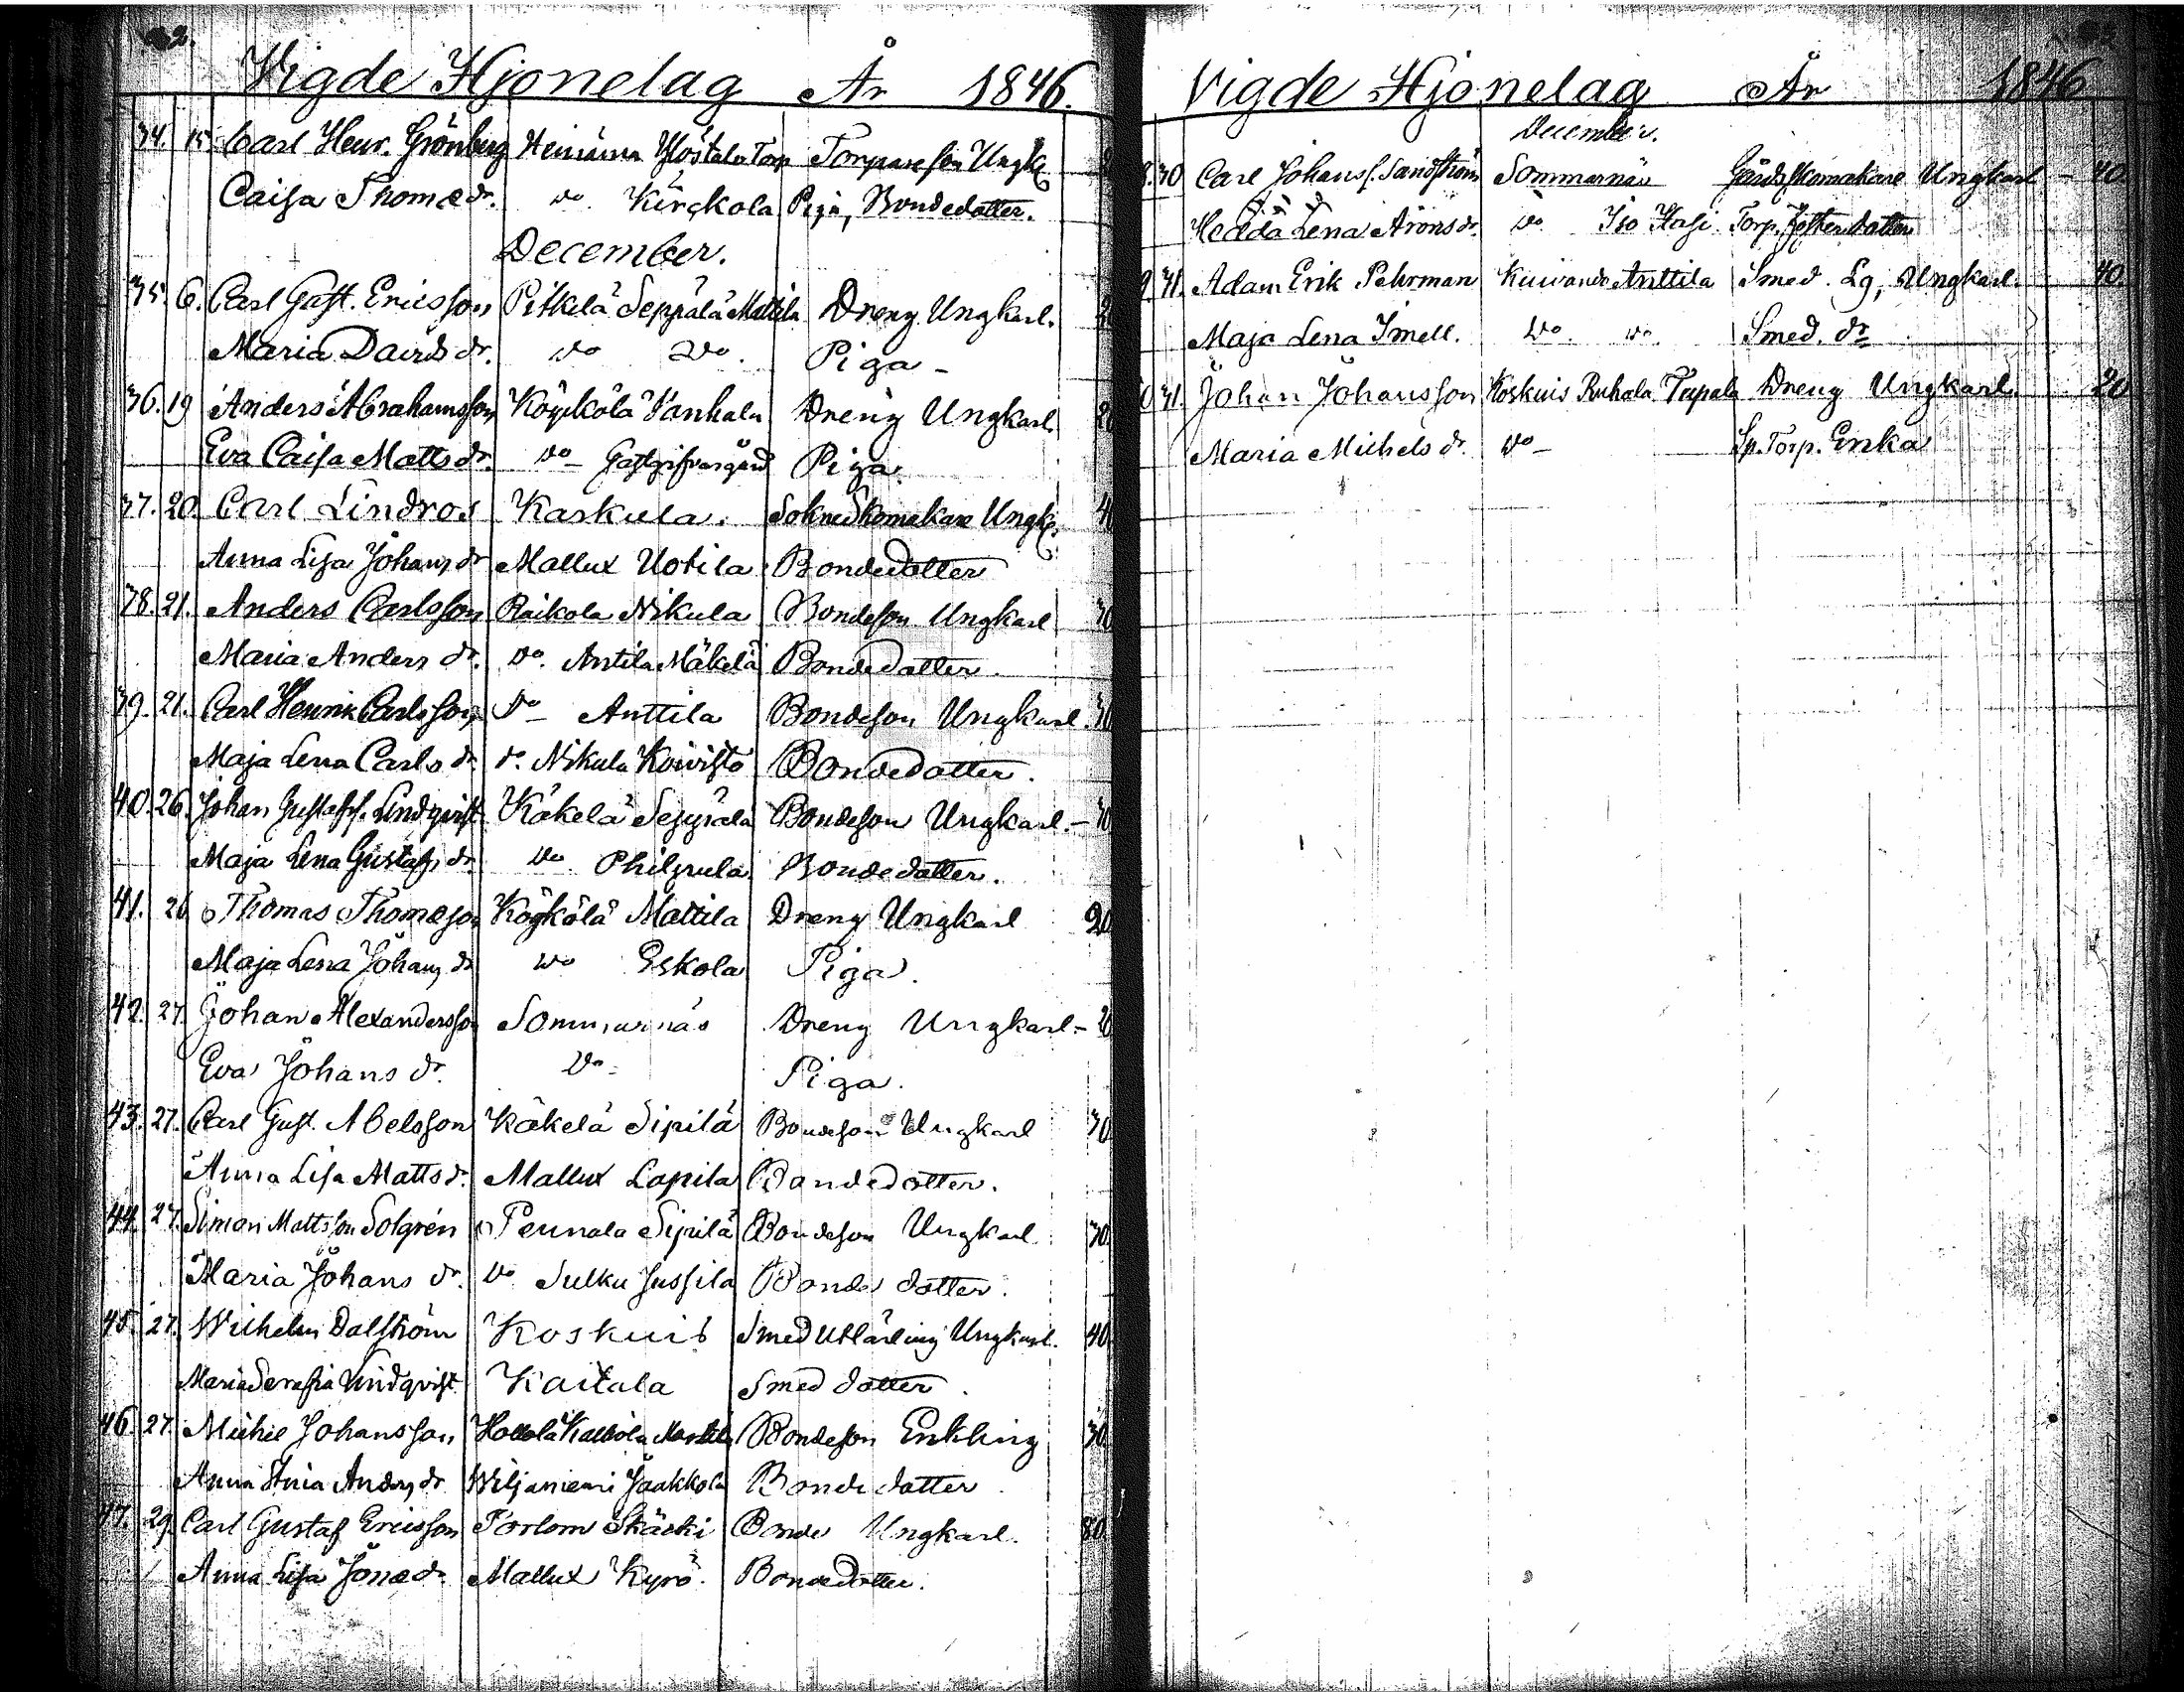 Vigde Hjonelag År 1846.
34. 15 Carl Henr. Grönberg Heinäma Torp Torpareson Ungk.
Caisa Thomædr. do Kirckola Piga, Bondedotter.
December.
35. 6. Carl Gust. Ericsson Pitkelä Seppälä Mattila Dreng Ungkarl. 2
Maria Davids dr. do do. Piga -
36. 19 Anders Abrahamsson Köykölä Vanhala Dreng Ungkarl. 20
Eva Caisa Matts dr. do - Gästgifvargård Piga.
37. 20. Carl Lindros Karkula. Sokneskomakare Ungk. 4
Anna Lisa Johans dr Mallux Uotila Bondedotter
38. 21. Anders Carlsson Raikola Nikula Bondeson Ungkarl 30
Maria Anders dr. do. Antila Mäkelä Bondedotter.
39. 21. Carl Henrik Carlsson do - Anttila Bondeson Ungkarl. 30
Maja Lena Carls dr. do. Nikula Koivisto Bondedotter.
40. 26. Johan Gustafss. Lindqvist Käkelä Seppälä Bondeson Ungkarl. - 30
Maja Lena Gustafs dr. do Philpula. Bondedotter.
41. 26 Thomas Thomæson Köykölä Mattila Dreng Ungkarl 20
Maja Lena Johans dr do Eskola Piga.
42. 27. Johan Alexandersson Sommarnäs Dreng Ungkarl - 20
Eva Johans dr. do - Piga.
43. 27. Carl Gust. Abelsson Käkelä Sipilä Bondeson Ungkarl 30
Anna Lisa Matts dr. Mallux Lapila Bondedotter.
44. 27. Simon Mattsson Solgrén Pennala Sipilä Bondeson Ungkarl 30.
Maria Johans dr. do Sulku Jussila Bonde dotter.
45. 27. Wilhelm Dalström Koskuis Smed Utlärling Ungkarl. 40
Maria Serafia Lindqvist Kaitala Smed dotter.
46. 27. Michel Johansson Hollola Kalliola Bondeson Enkling 30
Anna Stina Anders dr Wiljaniemi Jaakkola Bonde dotter.
47. 29. Carl Gustaf Ericsson Torlom Skäski Bonde Ungkarl. 80
Anna Lisa Jonædr. Mallux Kyrö. Bondedotter.
Vigde Hjonelag År 1846
December.
8. 30 Carl Johanss. Sandström Sommarnäs Gårdsskomakare Ungkarl - 40.
Hedda Lena Arons dr. do. Iso Hasi Torp. dotter
9 31. Adam Erik Pehrman Kuivando Anttila Smed. Lg, Ungkarl. 40.
Maja Lena Smell. do. do. Smed. dr
0 31. Johan Johansson Koskuis Ruhala Tupala Dreng Ungkarl. 20
Maria Michels dr. do - Sp. Torp. Enka